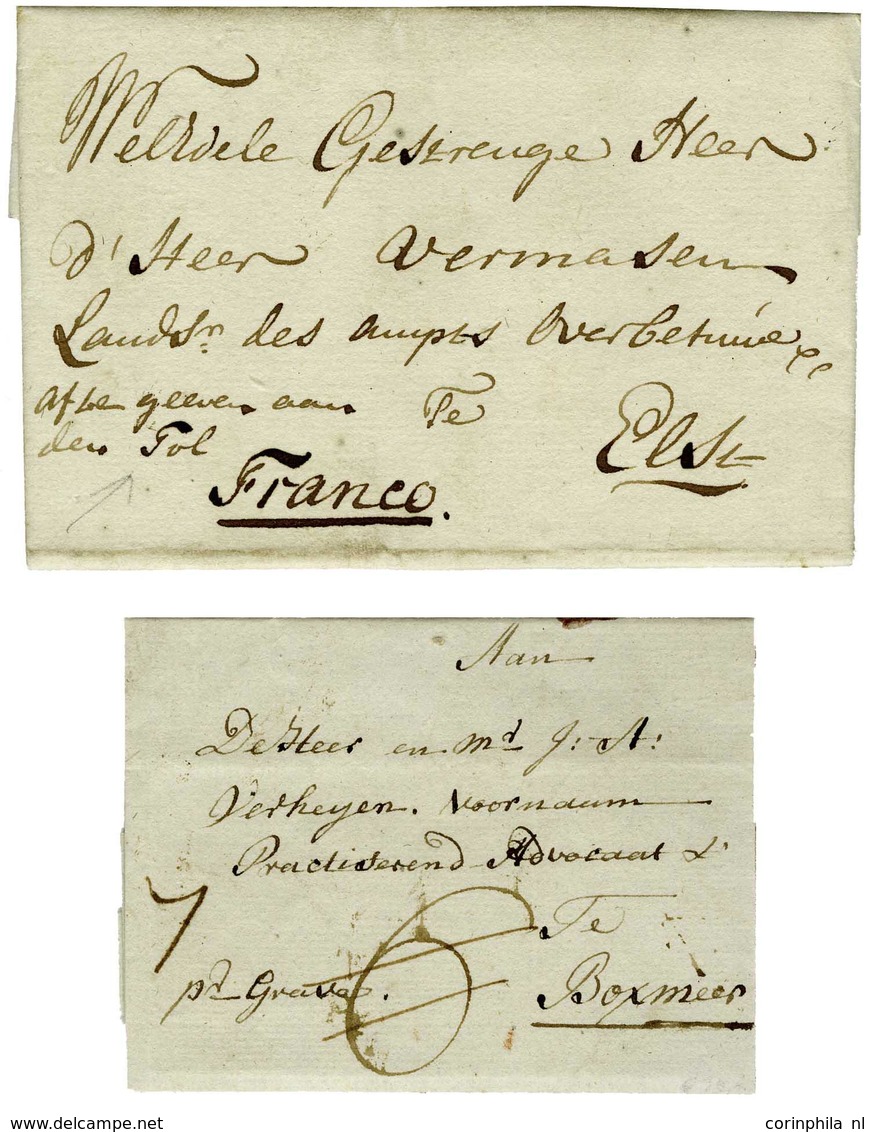 WelEdele Gestrenge Heer
d'Heer Vermasen
Landsr. des ampts Overbetuwe
af te geeven aan Te
den Tol Elst
Franco.
Aan
De Heer en Mr J: A:
Verheyen. Voornaam
Practiserend Advocaat &
7 Te
6
pr Grave. Boxmeer
corinphila nl